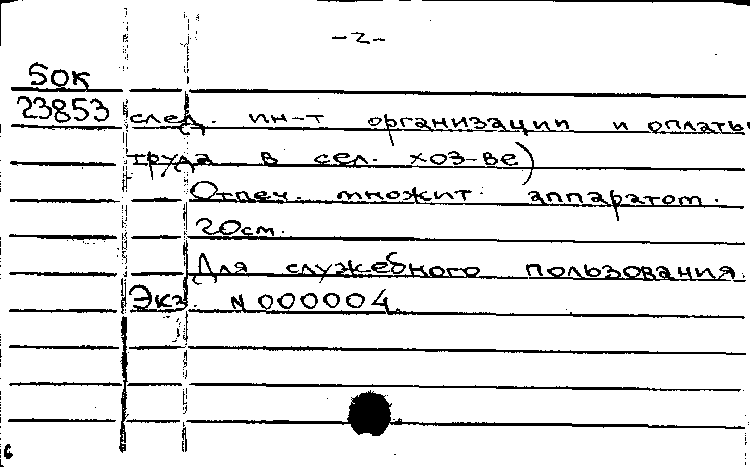 -2-
БОК
23853 след. ин-т организации и оплаты
труда в сел. хоз-ве)
Отпеч. множит. аппаратом.
20см.
Для служебного пользования.
Экз. N 000004.
6